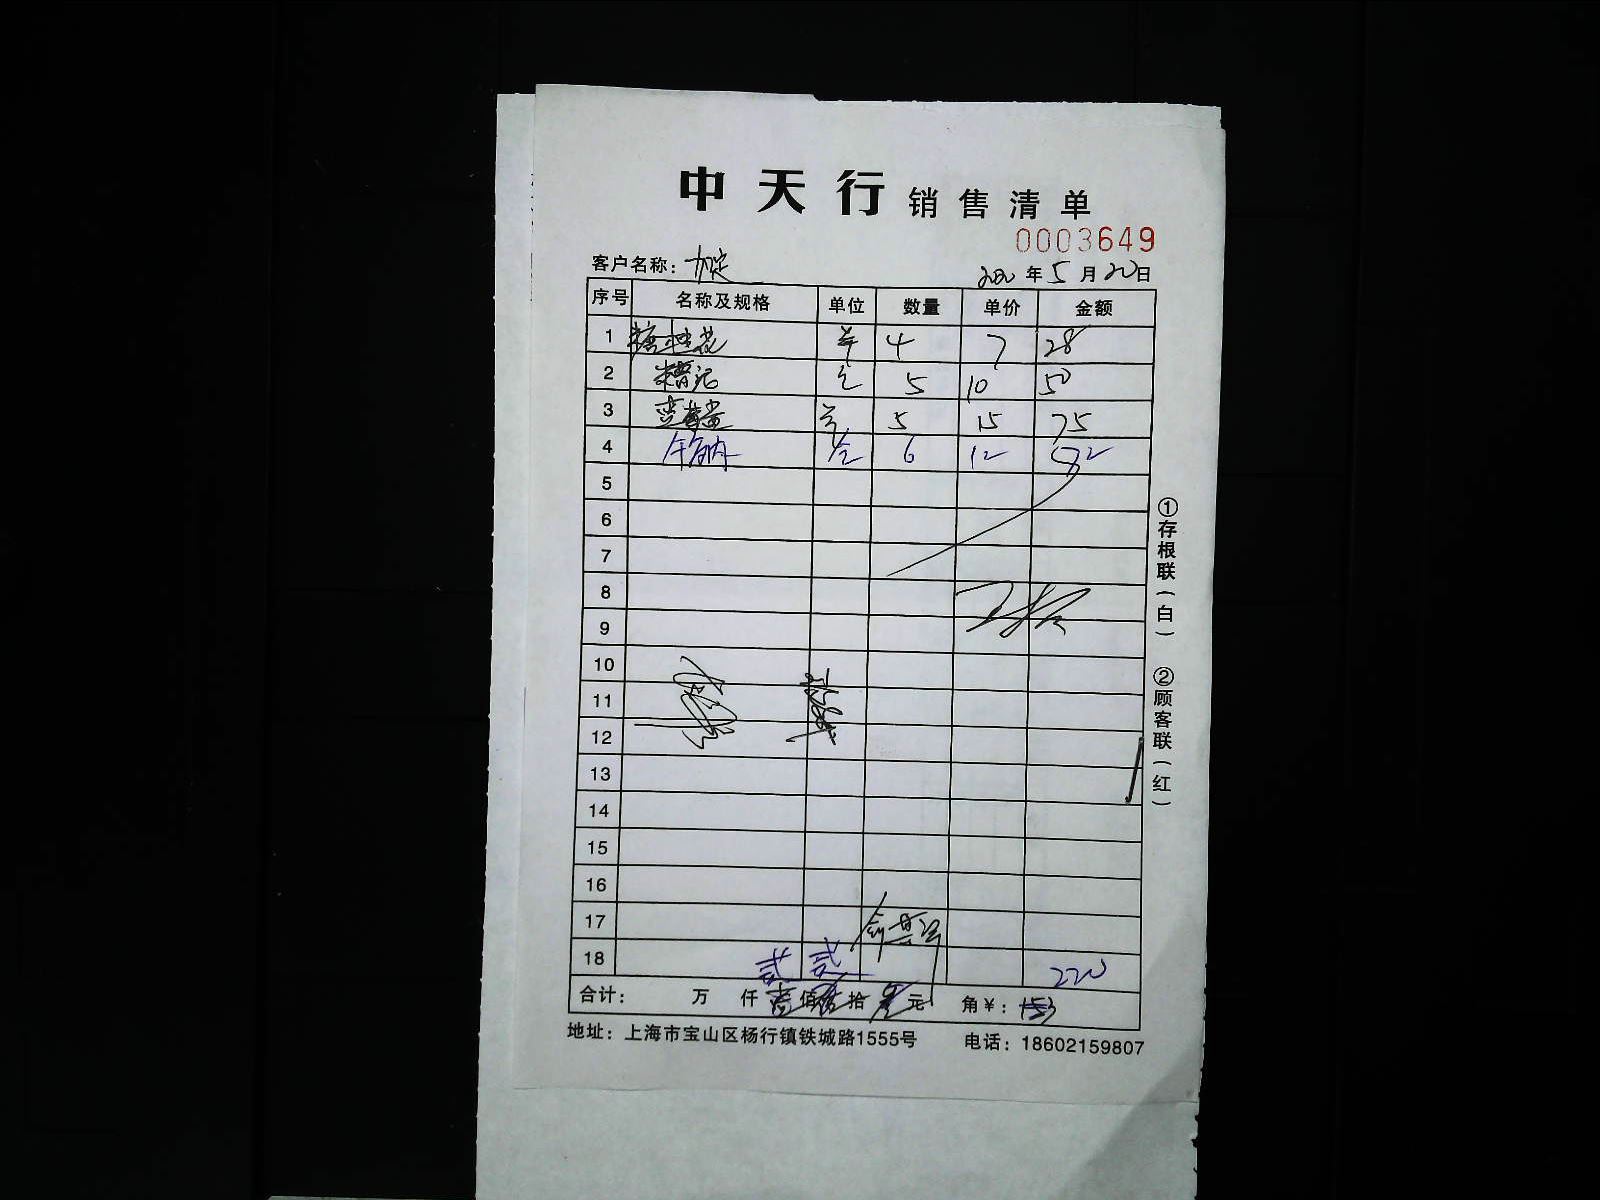 中天行 销售清单
0003649
客户名称：
2020年5月20日
序号 名称及规格 单位 数量 单价 金额
1 糖桂花 4 7 28
2 5 10 50
3 蓝莓酱 5 15 75
4 6 12 72
5
6
7
8
9
10
11
12
13
14
15
16
17
18 贰 贰 220
合计： 万 仟 佰 拾 元 角￥：153
地址：上海市宝山区杨行镇铁城路1555号 电话：18602159807
①存根联（白） ②顾客联（红）